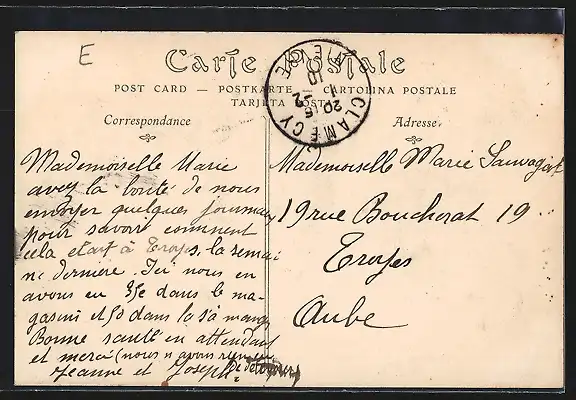 E
Carte Postale
POST CARD — POSTKARTE — CARTOLINA POSTALE
TARJETA POSTAL
CLAMECY
NIEVRE
20 15
1 -2
10
Correspondance
Adresse
Mademoiselle Marie
avez la bonté de nous
envoyer quelques journaux
pour savoir comment
cela était à Troyes, la semai
ne dernière. Ici nous en
avons eu 35c dans le ma-
gasin et 50 dans la s'à mang
Bonne santé en attendant
et merci (nous n'avons rien
Jeanne et Joseph de
Mademoiselle Marie Sauvageot
19 rue Boucherat 19
Troyes
Aube